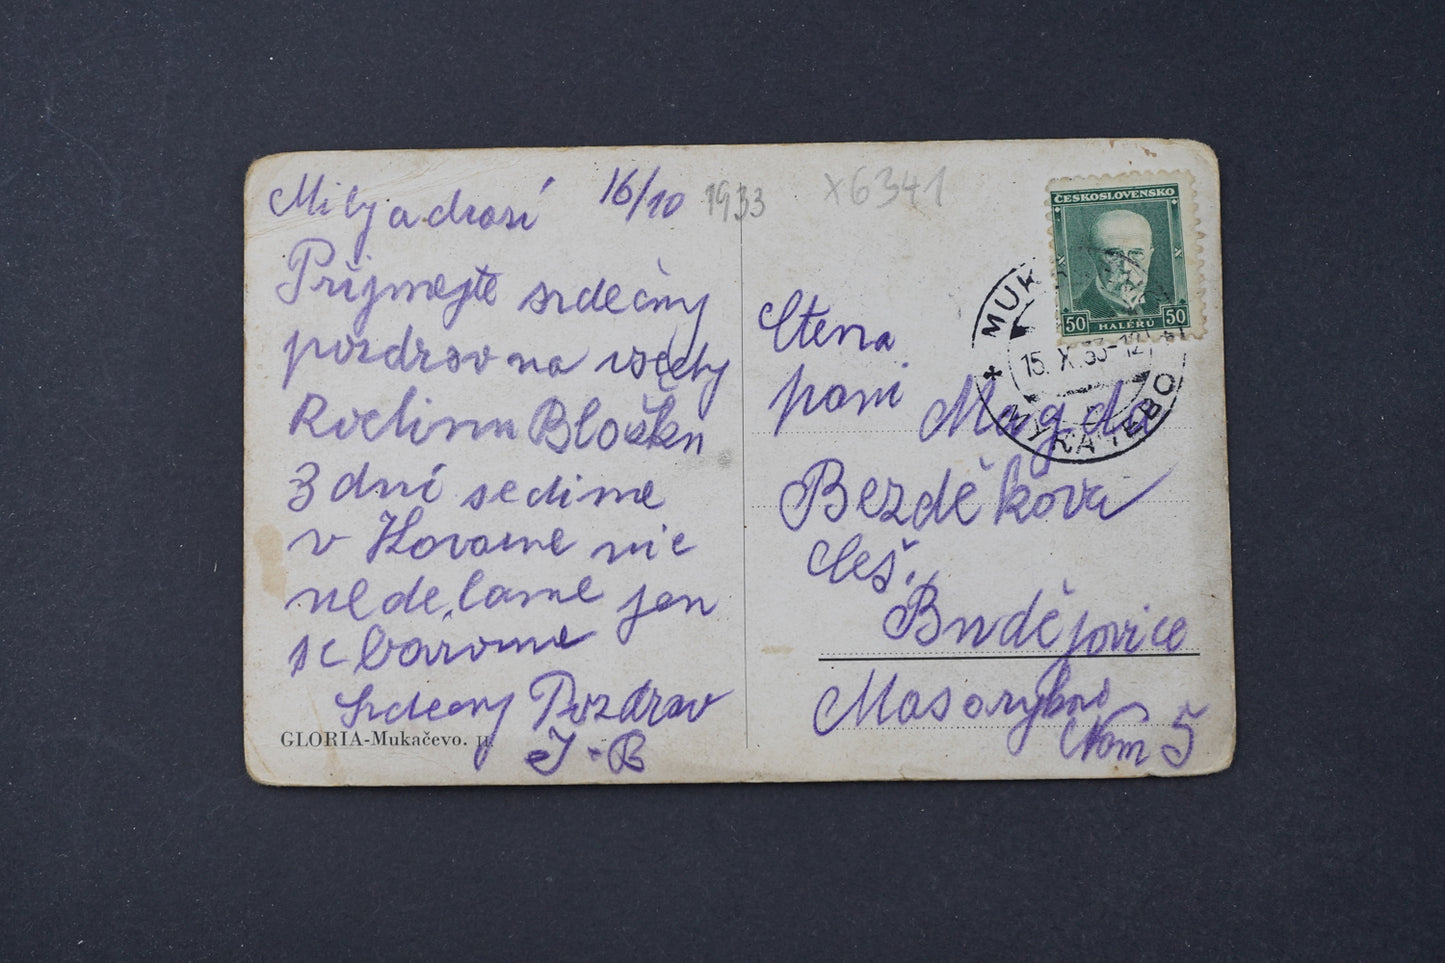 Milý a drazí 16/10 1933
Přijmejte srdečný
pozdrav na všechy
Rodinu Blošku
3 dni sedime
v Hovorne nic
nedelame jen
se bavime
Srdecny Pozdrav
J-B
GLORIA-Mukačevo. II.
x6341
ČESKOSLOVENSKO
50 HALÉRŮ 50
MUK
15. X. 33-12
МУКАЧЕВО
Ctena
pani Magda
Bezděkova
Ceš.
Budějovice
Masarykovo
Nám 5